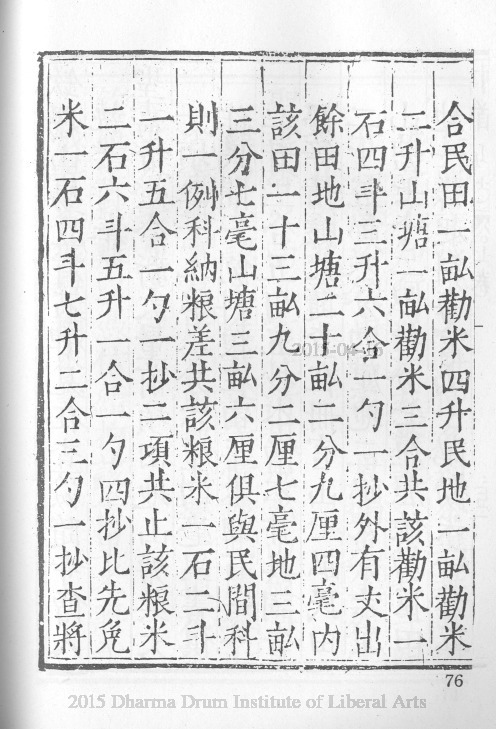 合民田一畝勸米四升民地一畝勸米
二升山塘一畝勸米三合共該勸米一
石四斗三升六合一勺一抄外有丈出
餘田地山塘二十畝二分九厘四毫內
該田一十三畝九分二厘七毫地三畝
三分七毫山塘三畝六厘俱與民間科
則一例科納粮差共該粮米一石二斗
一升五合一勺一抄二項共止該粮米
二石六斗五升一合一勺四抄比先免
米一石四斗七升二合三勺一抄查將
2015-04-15
76
2015 Dharma Drum Institute of Liberal Arts